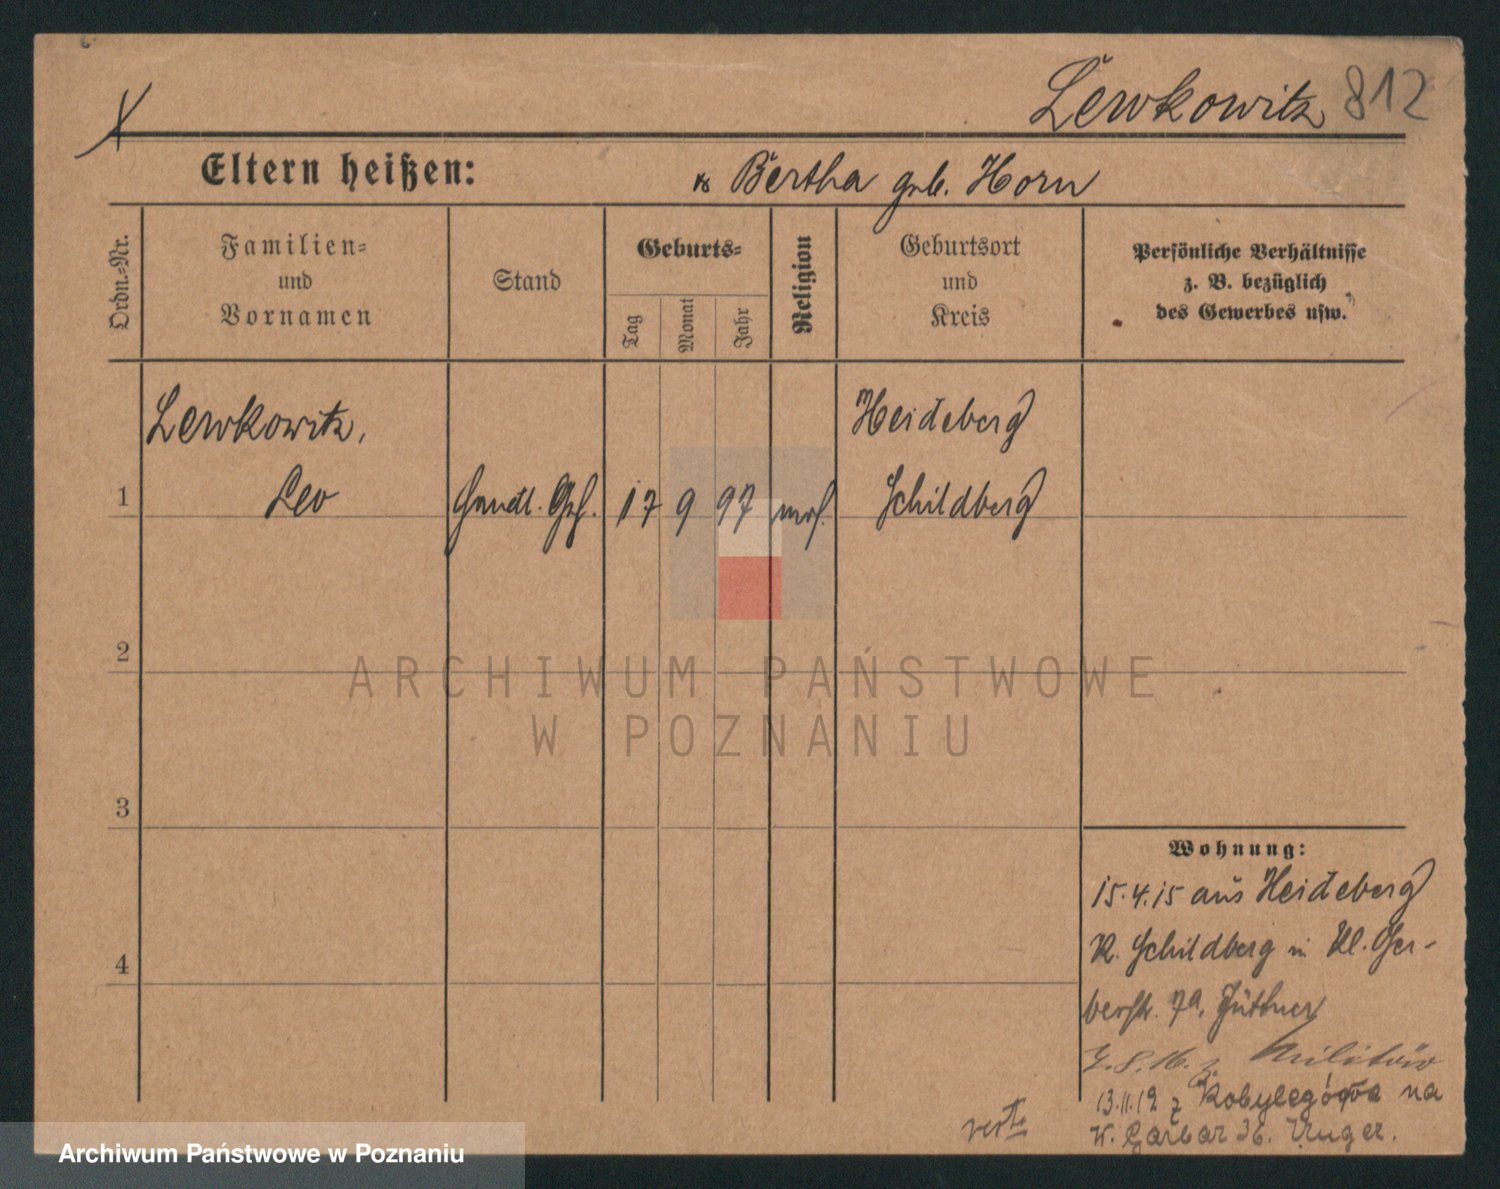 Lewkowitz 812
Eltern heißen: Bertha geb. Horn
Ordn.=Nr.
Familien=
und
Vornamen
Stand
Geburts=
Tag
Monat
Jahr
Religion
Geburtsort
und
Kreis
Persönliche Verhältnisse
z. B. bezüglich
des Gewerbes usw.
Lewkowitz,
Leo
1
Handl. Ghf.
17 9 97
mos.
Heideberg
Schildberg
2
3
4
Wohnung:
15.4.15 aus Heideberg
K. Schildberg in Kl. Ger-
berstr. 7a, Jüttner
z. Militär
13.11.19 z Kobylegóra na
W. Garbar 36. Unger.
verte
ARCHIWUM PAŃSTWOWE
W POZNANIU
Archiwum Państwowe w Poznaniu